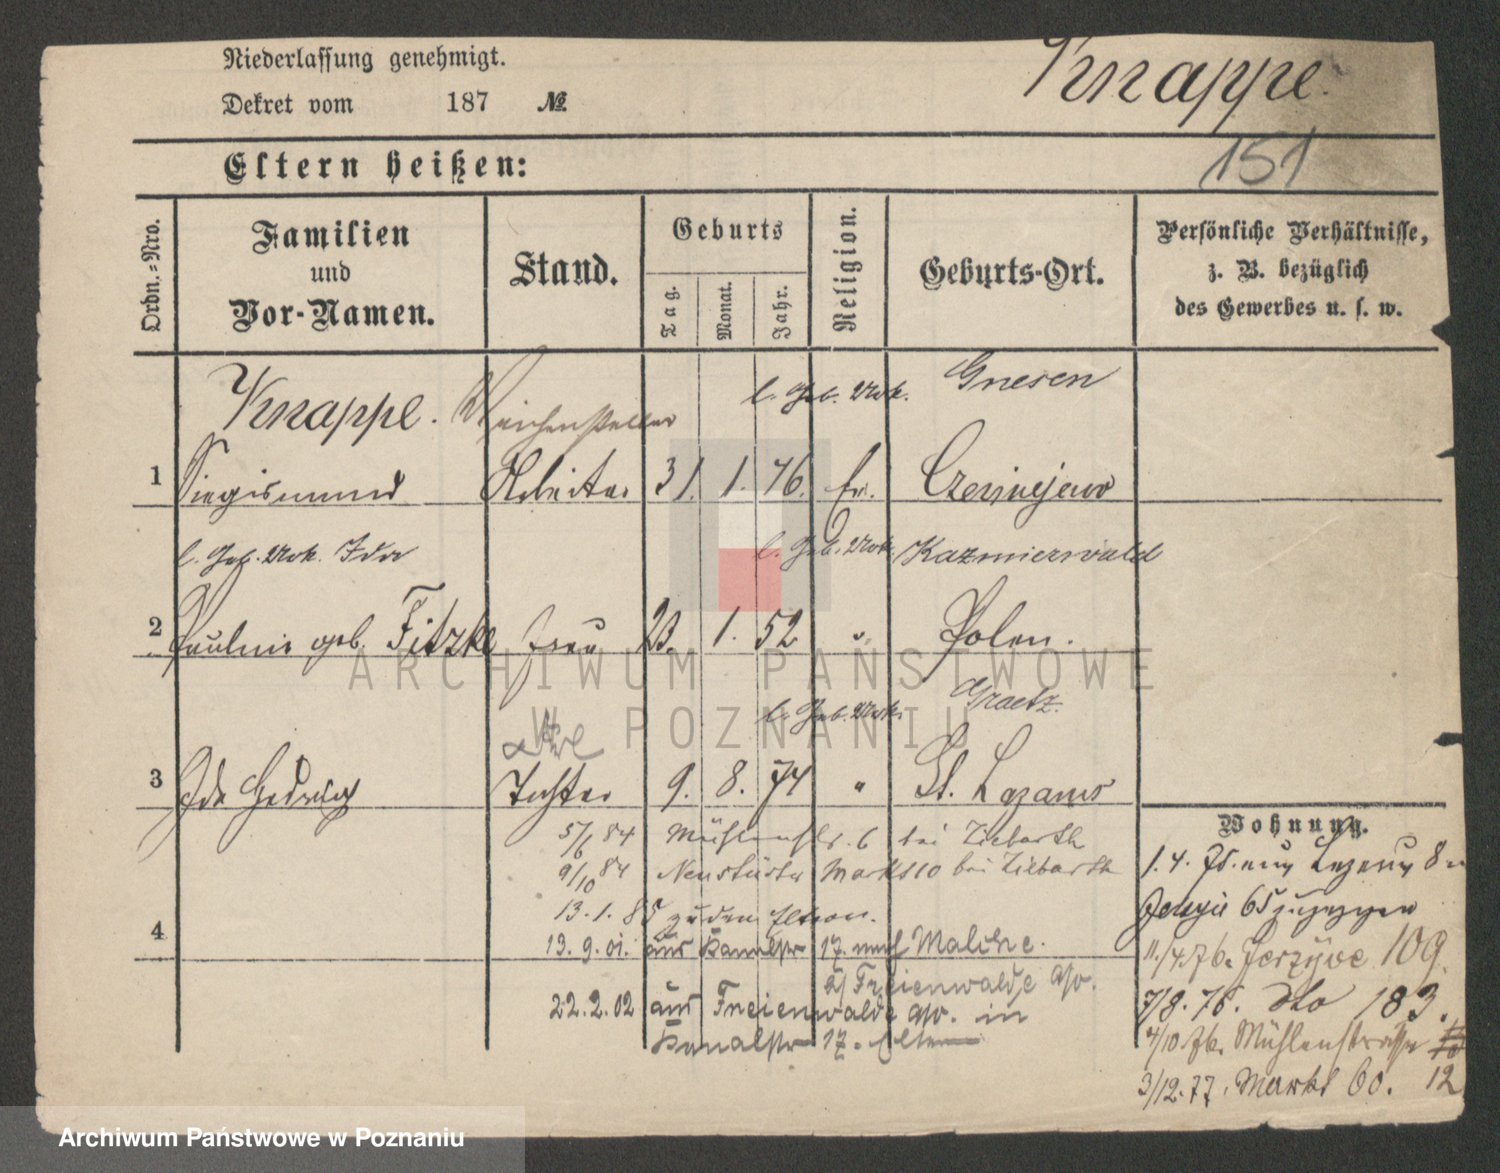 Niederlassung genehmigt.
Dekret vom 187 №
Knappe.
151
Eltern heißen:
Ordn.=Nro.
Familien und Vor-Namen.
Stand.
Geburts
Tag.
Monat.
Jahr.
Religion.
Geburts-Ort.
Persönliche Verhältnisse,
z. B. bezüglich
des Gewerbes u. s. w.
Knappe. Weichensteller l. Geb. Urk. Gnesen
1 Siegismund Arbeiter 31. 1. 46. Czerniejewo
l. Geb. Urk. Ida l. Geb. Urk. Kazmierwald
2 Pauline geb. Fitzke Frau 23. 1. 52 " Polen.
l. Geb. Urk. Graetz.
3 Ida Hedwig Tochter 9. 8. 74 " St. Lazarus
Wohnung.
5/6 84 Mühlenstr. 6 bei Ziebarth
9/10 84 Neustädter Markt 10 bei Ziebarth
13. 1. 85 zu den Eltern.
4
13. 9. 01. aus Kanalstr 17. nach Malche.
a/ Freienwalde a/o.
22. 2. 02 aus Freienwalde a/o. in
Kanalstr 17. Eltern
1. 4. 75. aus Lazarus 8
65 zugezogen
11./4. 76. Jerzyce 109.
7/8. 76. dto 183.
4/10. 76. Mühlenstrasse
3/12. 77. Markt 60. 12
ARCHIWUM PAŃSTWOWE
W POZNANIU
Archiwum Państwowe w Poznaniu